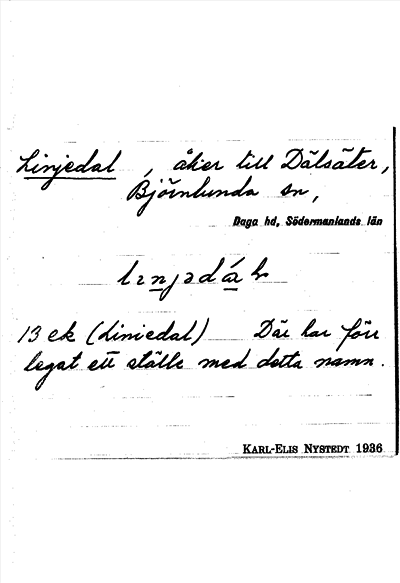 Linjedal, åker till Dälsäter,
Björnlunda sn,
Daga hd, Södermanlands län
13 ek (Liniedal) Där har förr
legat ett ställe med detta namn.
KARL-ELIS NYSTEDT 1936